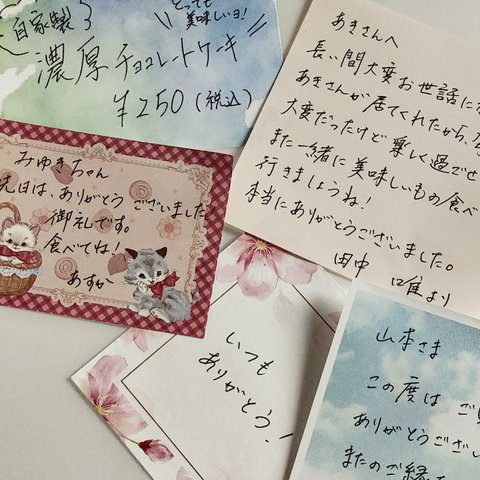 自家製
とっても
美味しいヨ!
濃厚チョコレートケーキ
¥250(税込)
あきさんへ
長い間大変お世話にな
あきさんが居てくれたから、
大変だったけど楽しく過ごせ
また一緒に美味しいもの食べ
行きましょうね!
本当にありがとうございました。
田中 唯より
みゆきちゃん
先日は、ありがとうございました
御礼です。
食べてね!
あすか
いつも
ありがとう!
山本さま
この度は ご
ありがとうござい
またのご縁